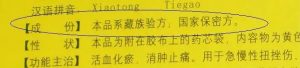 汉语拼音 Xiaotong Tiegao
【成 份】 本品系藏族验方，国家保密方。
【性 状】 本品为附在胶布上的药芯袋，内容物为黄色
【功能主治】 活血化瘀，消肿止痛。用于急慢性扭挫伤